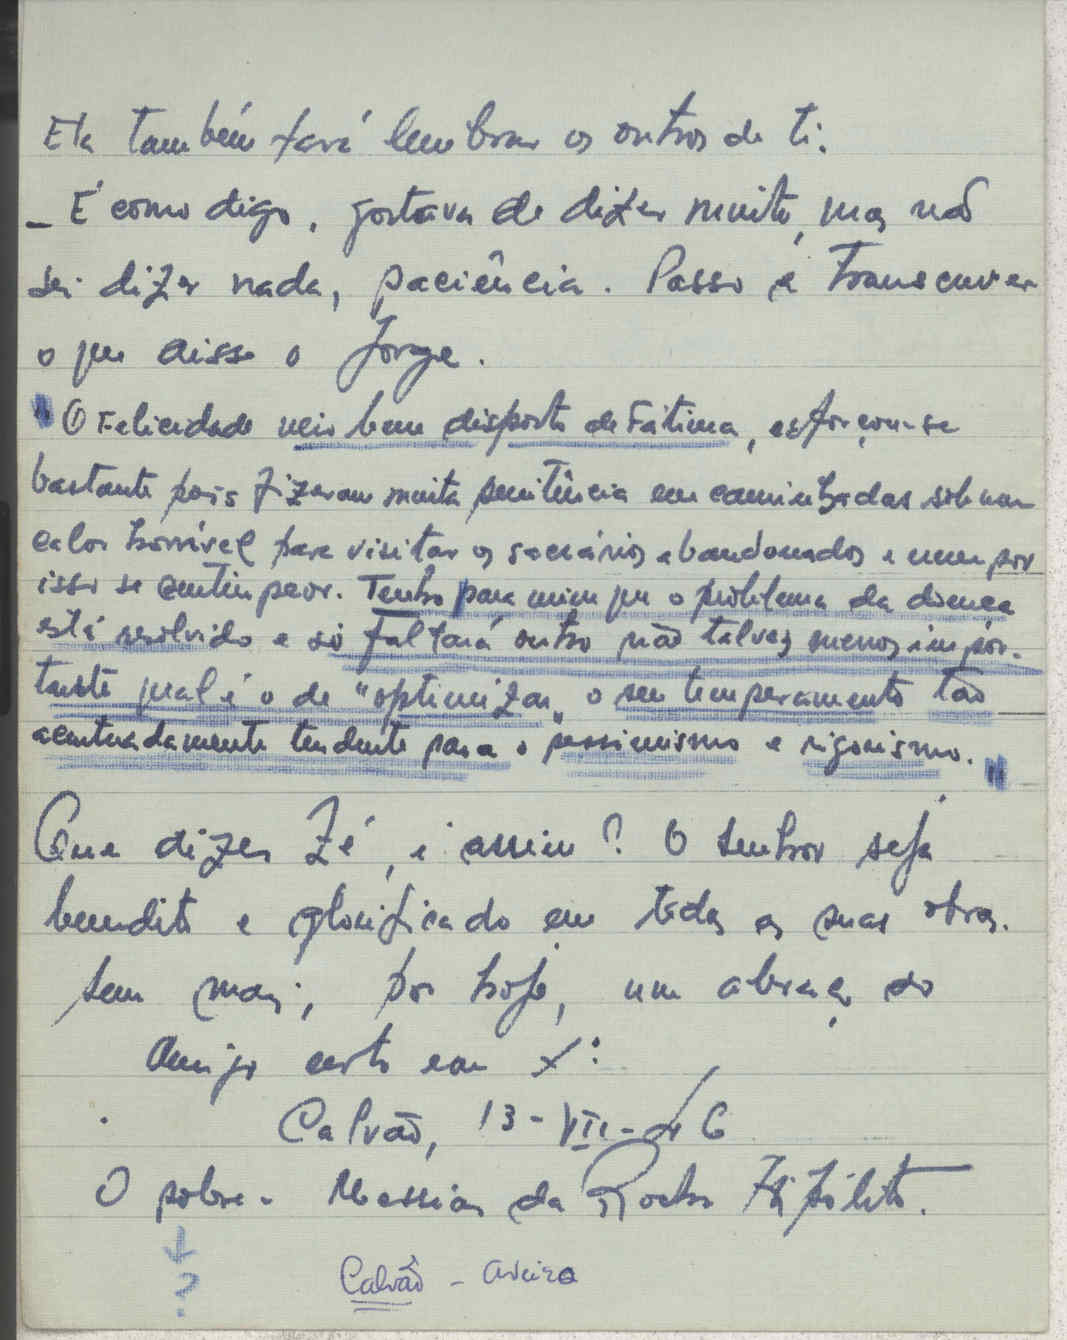 Ela também fará lembrar os outros de ti.
_ É como digo, gostava de dizer muito, mas não
sei dizer nada, paciência. Passo a transcrever
o que disse o Jorge.
"O Felicidade veio bem disposto de Fátima, esforçou-se
bastante pois fizeram muita penitência em caminhadas sob um
calor horrível para visitar os sacrários abandonados e nem por
isso se sentiu peor. Tenho para mim que o problema da doença
está resolvido e só faltará outro não talvez menos impor-
tante qual é o de "optimizar" o seu temperamento tão
acentuadamente tendente para o pessimismo e rigorismo."
Que dizes Zé, é assim? O Senhor seja
bendito e glorificado em todas as suas obras.
Sem mais, por hoje, um abraço do
Amigo certo em X:
Calvão, 13-VII-46
O pobre - Messias da Rocha Hipólito.
↓
?
Calvão - Aveiro